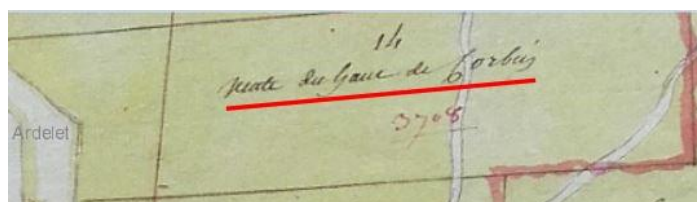 14
vente du haut de Corbis
3708
Ardelet